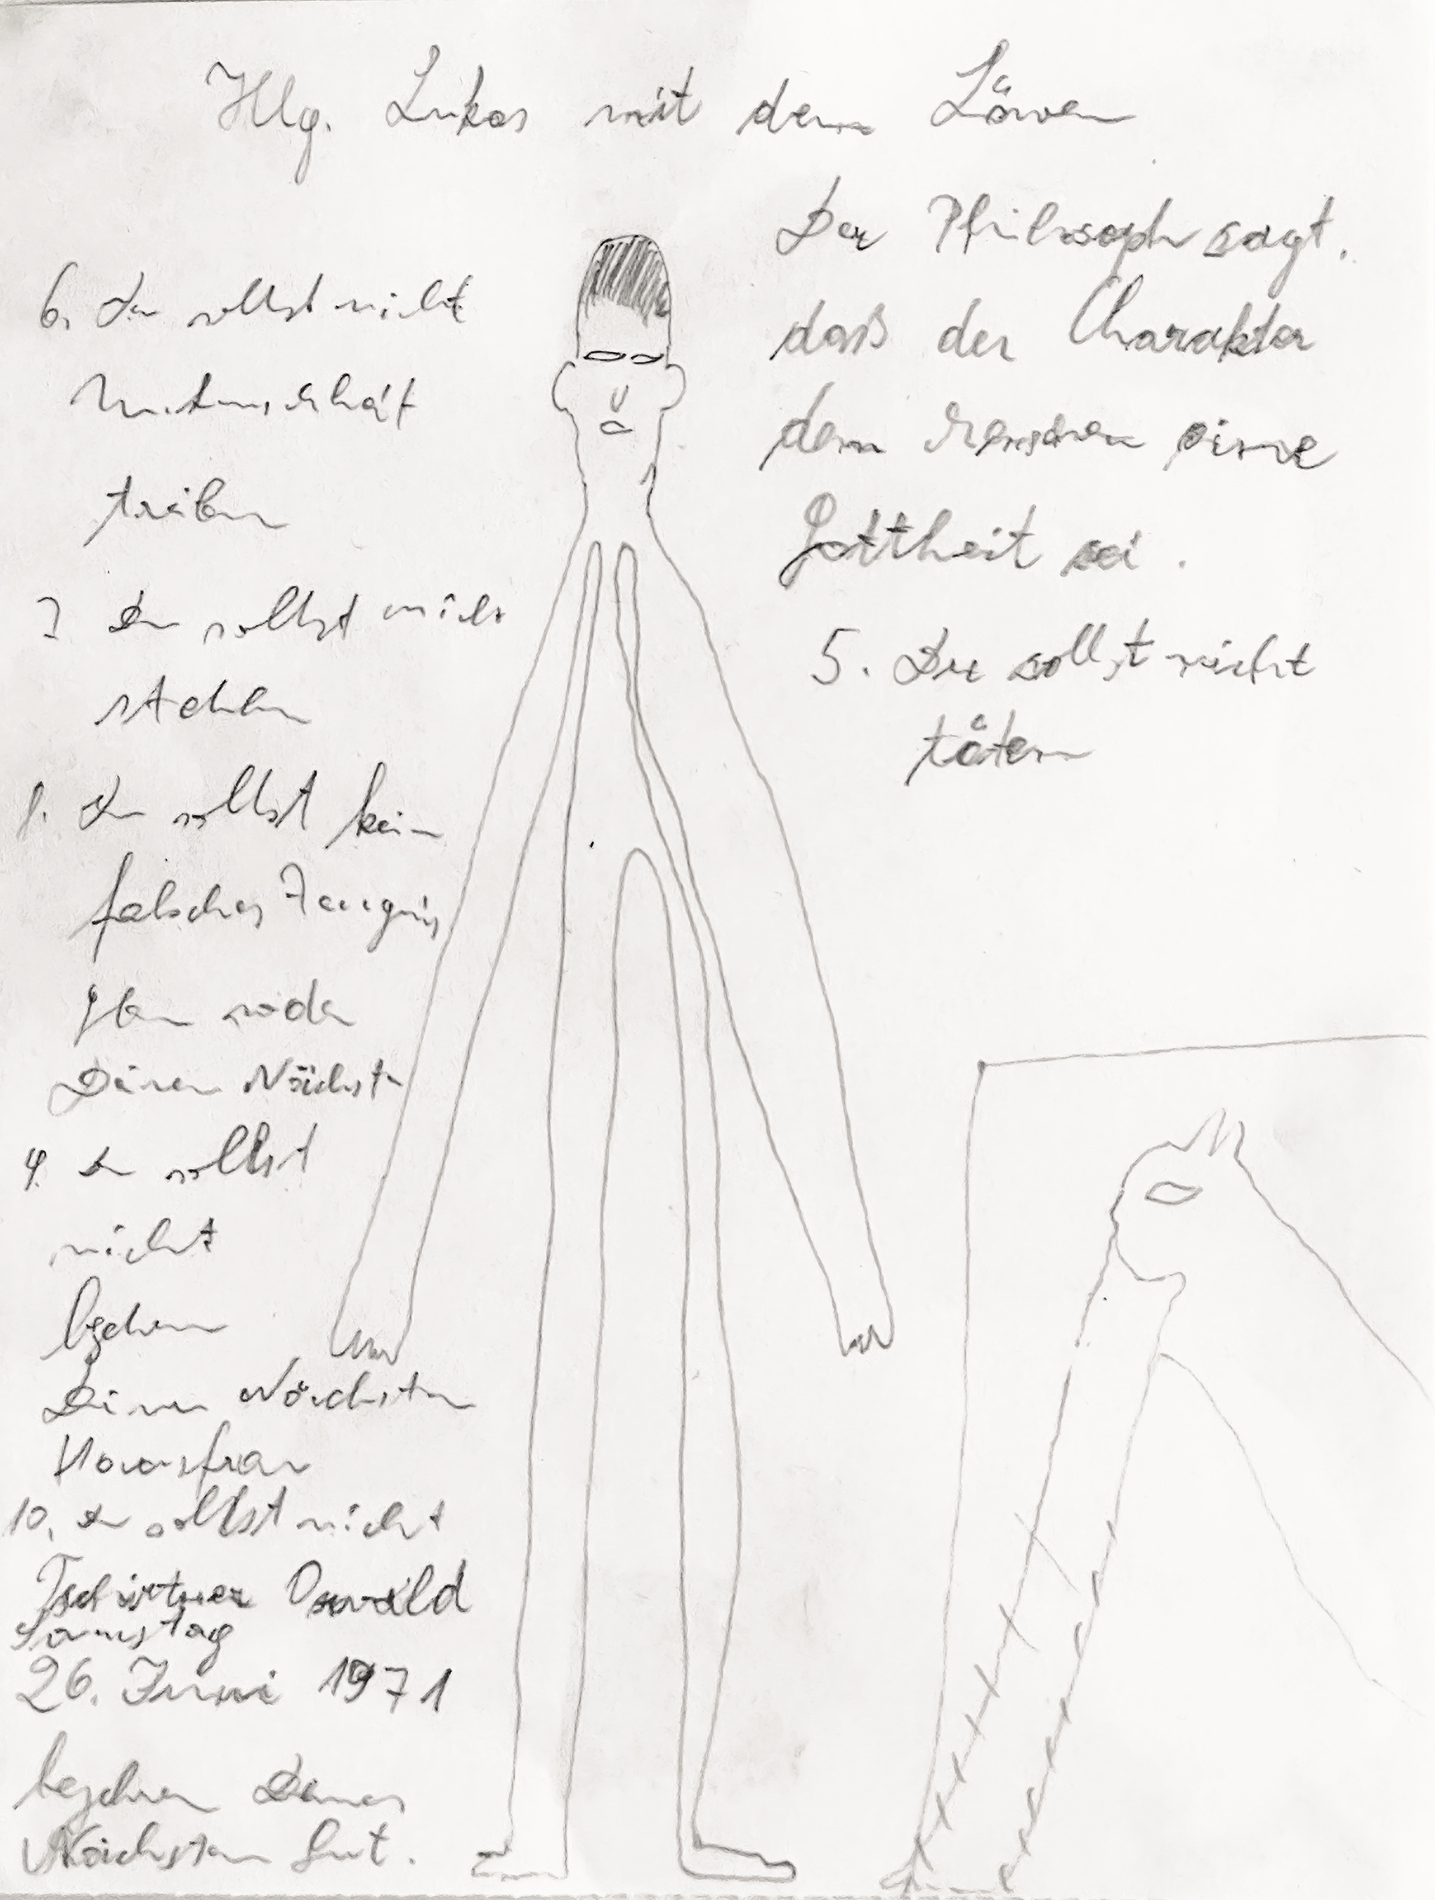 Hlg. Lukas mit dem Löwen
Der Philosoph sagt.
daß der Charakter
dem Menschen eine
Gottheit sei.
5. Du sollst nicht
töten
6. Du sollst nicht
Unkeuschhät
treiben
7 Du sollst nicht
stehlen
8. Du sollst kein
falsches Zeugnis
geben wider
Deinen Nächsten
9. Du sollst
nicht
begehren
Deines Nächsten
Hausfrau
10. Du sollst nicht
Tschirtner Oswald
Samstag
26. Juni 1971
begehren Deines
Nächsten Gut.